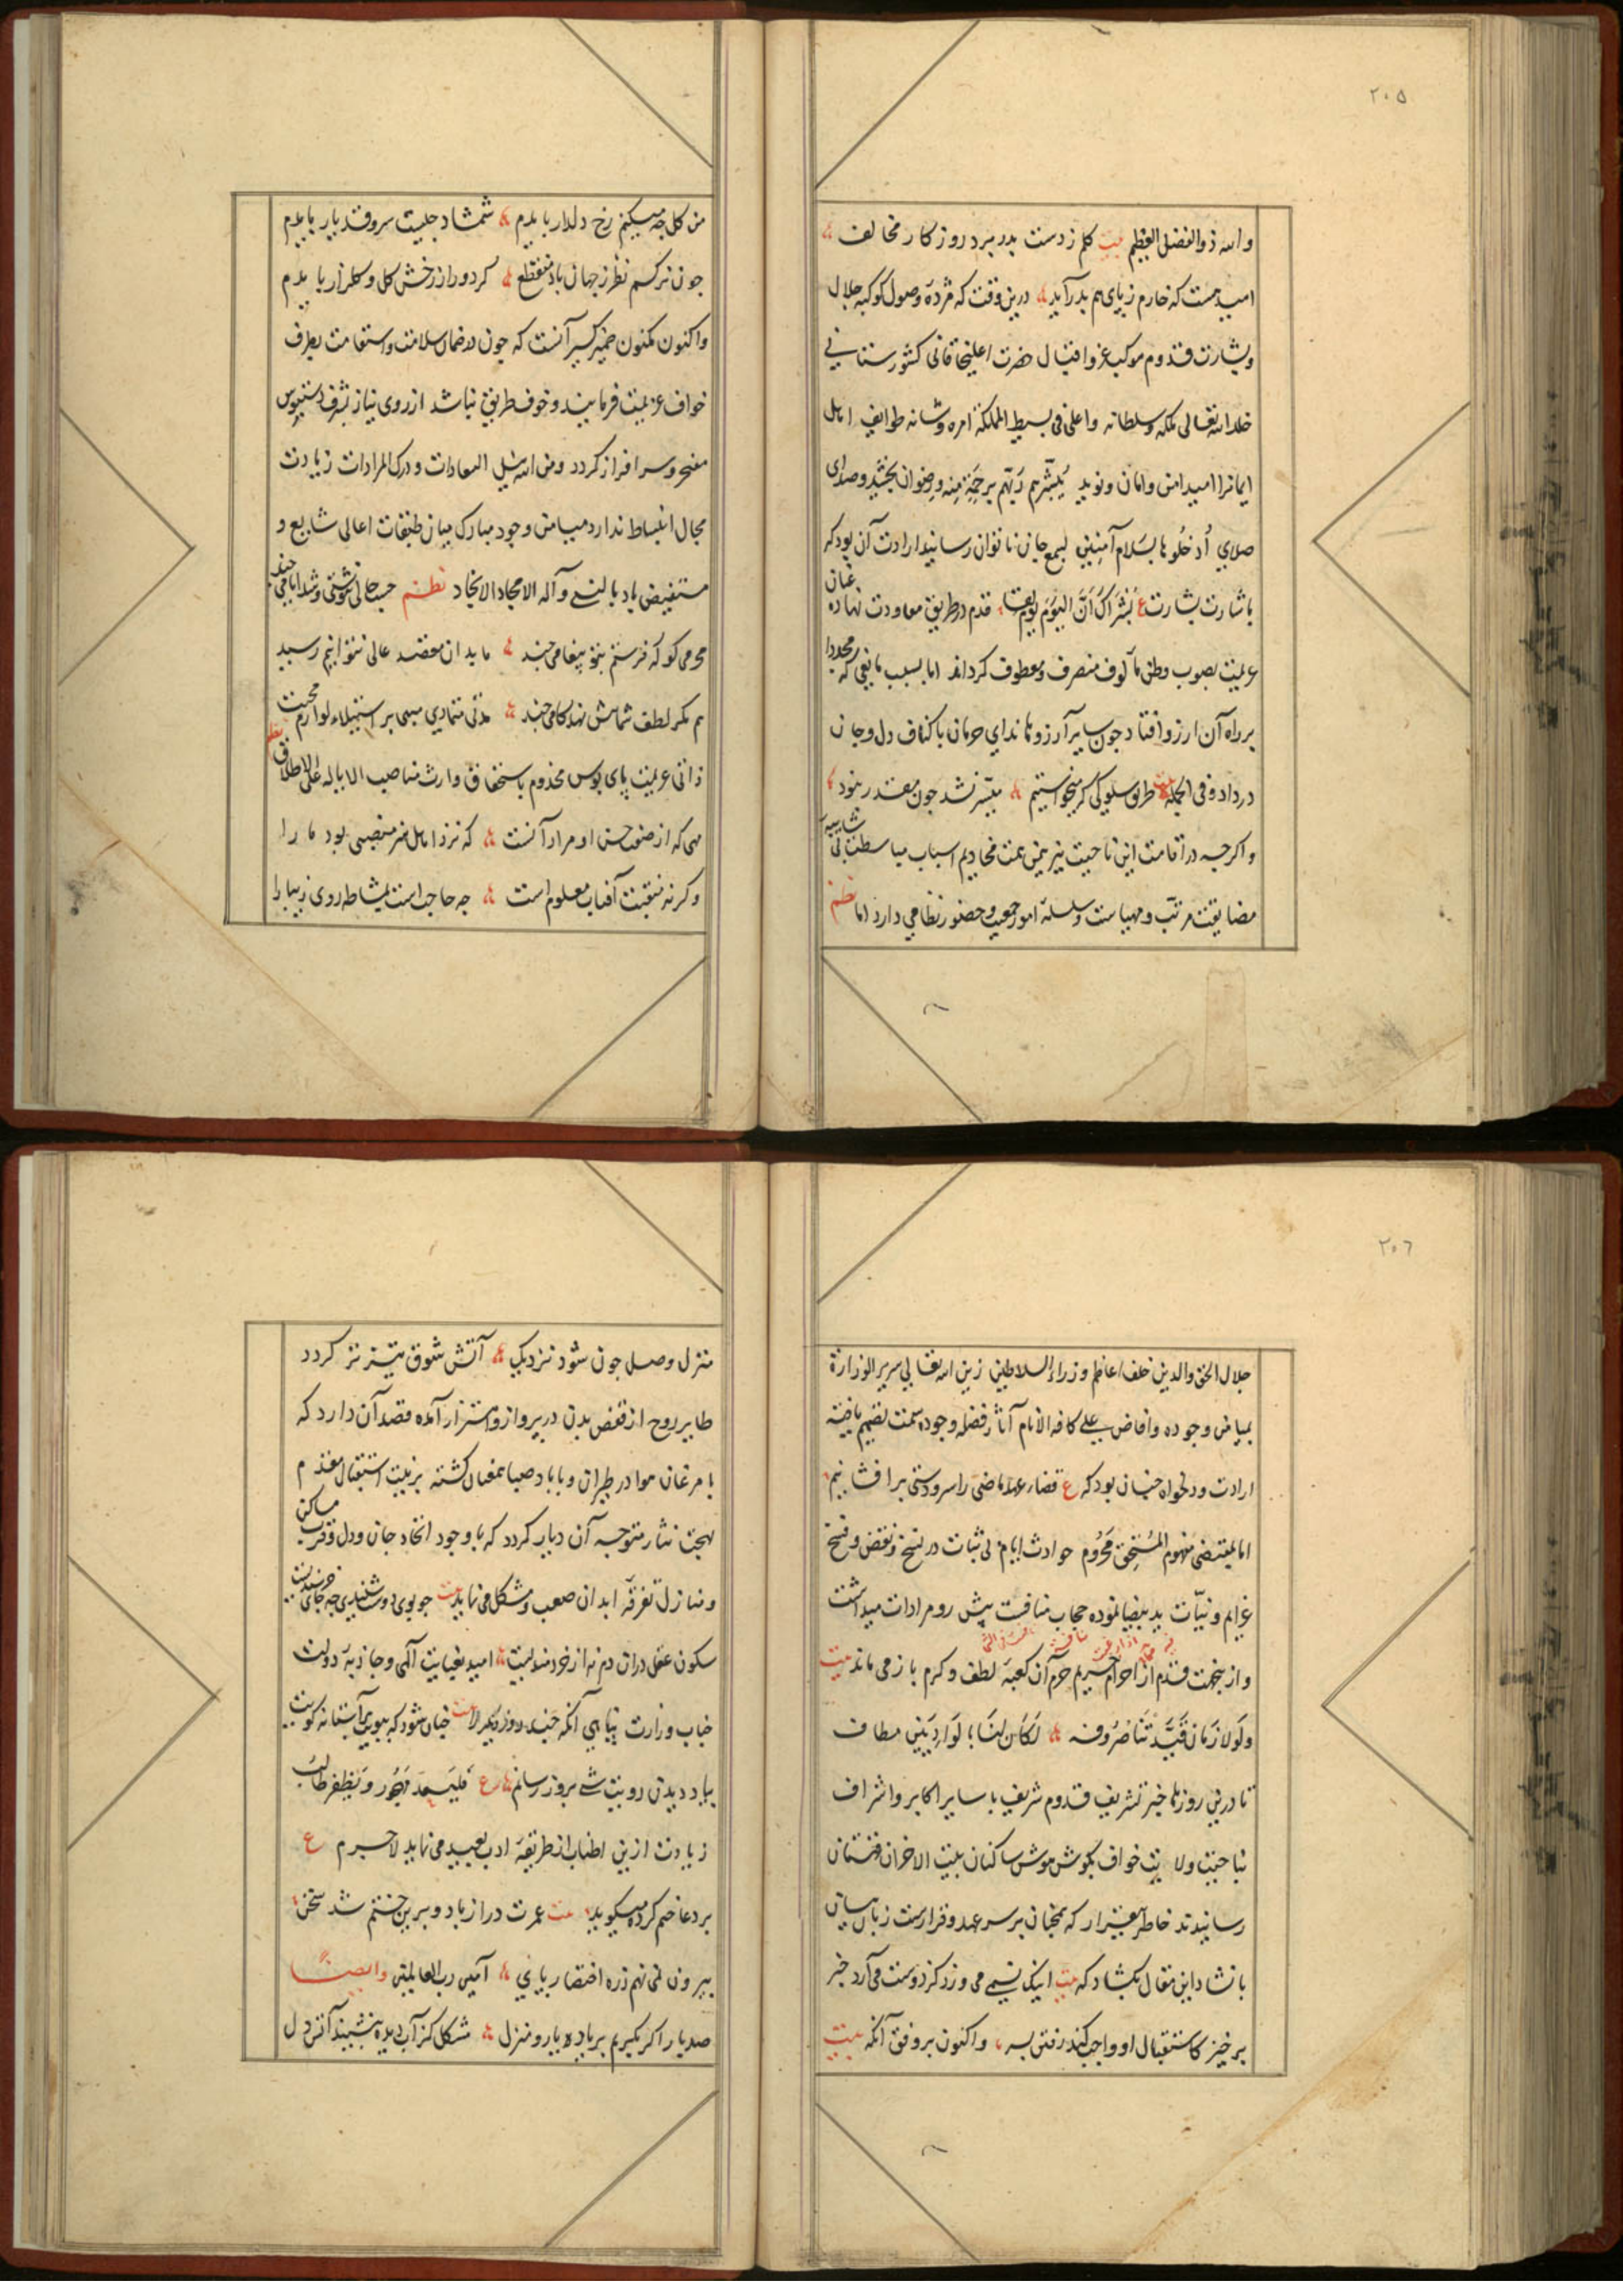 ۲۰۵
والله ذوالفضل العظیم بیت کلم ز دست بدر برد روزکار مخالف
امید هست که خارم ز پای هم بدر آید درین وقت که مژدهٔ وصول کوکبه جلال
وبشارت قدوم موکب عز و اقبال حضرت اعلیخاقانی کشورستانی
خلد الله تعالی ملکه وسلطانه واعلی فی بسیط المملکة امره وشانه طوایف اهل
ایمانرا امید امن وامان ونوید یُبَشِّرهم رَبّهم بِرَحمَةٍ مِنه ورِضوان بخشید وصدای
صلای اُدخلُوها بِسَلام آمِنِین بسمع جان ناتوان رسانید ارادت آن بود که
باشارت بشارت ع بُشراکَ اَنَّ الیَومَ یوم لِقا قدم در طریق معاودت نهاده عنان
عزیمت بصوب وطن مألوف منصرف ومعطوف کرداند اما بسبب مانعی که مجددا
بر راه آن آرزو افتاد چون سایر آرزوها ندای حرمان باکناف دل وجان
در داد وفی الجمله بیت طریق سلوکی که میخواستیم میسر نشد چون مقدر نبود
واکرچه در اقامت این ناحیت نیز بیمن همت مخادیم اسباب مباسطت بی شایبه
مضایقت مرتب ومهیاست وسلسلهٔ امور جمعیت وحضور نظامی دارد اما نظم
من کل چه میکنم رخ دلدار بایدم شمشاد چیست سرو قد یار بایدم
چون نرکسم نظر ز جهان باد منقطع کر دور از رخش کل وکلزار بایدم
واکنون مکنون ضمیر کسیر آنست که چون در ضمان سلامت واستقامت بطرف
خواف عزیمت فرمایند وخوف طریق نباشد از روی نیاز بشرف دستبوس
مفتخر وسرافراز کردد ومن الله نیل السعادات ودرک المرادات زیادت
مجال انبساط ندارد میامن وجود مبارک میان طبقات اعالی شایع و
مستفیض باد بالنبی وآله الامجاد الانجاد نظم حسب حالی ننوشتی وشد ایامی چند
محرمی کو که فرستم بتو پیغامی چند ما بدان مقصد عالی نتوانیم رسید
هم مکر لطف شما پیش نهد کامی چند مدتی متمادی میباید استیلاء لوازم محبت
ذاتی عزیمت پای بوس مخدوم باستحقاق وارث مناصب الایاله علی الاطلاق نظم
مهی که از صفت حسن او مراد آنست که نزد اهل هنر منصبی بود ما را
وکرنه منقبت آفتاب معلوم است چه حاجت است بمشاطه روی زیبا را
۲۰۶
جلال الحق والدین خلف اعاظم وزراء السلاطین زین الله تعالی سریر الوزارة
بمیامن وجوده وافاض علی کافه الانام آثار فضله وجوده سمت تصمیم یافته
ارادت ودلخواه چنان بود که ع قضاء عهد ماضی را سر ودستی برافشانیم
اما بمقتضی مفهوم المُستَحِق مَحرُوم حوادث ایام بی ثبات در نسخ ونقض وفسخ
عزایم ونیّات ید بیضا نموده حجاب مسافت پیش رو مرادات میداشت
واز ینجهت قدم از احرام حریم حرم آن کعبهٔ لطف وکرم باز می ماند بیت
ولَولا زمان قَیَّدَتنا صُرُوفه لکان لنا بِالوادیَین مطاف
تا درین روزها خبر تشریف قدوم شریف با سایر اکابر واشراف
بناحیت ولایت خواف بکوش هوش ساکنان بیت الاحزان قهستان
رسانیدند خاطر بیقرار که همچنان بر سر عهد وقرارست زبان بیان
بانشاد این مقال بکشاد که بیت اینک نسیمی می وزد کز دوست می آرد خبر
برخیز کاستقبال او واجب کند رفتن بسر واکنون بر وفق آنکه بیت
منزل وصل چون شود نزدیک آتش شوق تیزتر کردد
طایر روح از قفص بدن در پرواز واهتزاز آمده قصد آن دارد که
با مرغان هوا در طیران وبا باد صبا همعنان کشته بزینت استقبال مقدم
بهجت نثار متوجه آن دیار کردد که با وجود اتحاد جان ودل وقرب مساکن
ومنازل تفرقهٔ ابدان صعب ومشکل می نماید بیت چو بوی دوست شنیدی چه جای خرسندیست
سکون عقل دران دم نه از خردمندیست امید بعنایت آلهی وجاذبهٔ دولت
جناب وزارت پناهی آنکه چند روز دیکر الا بیت چنان شود که ببویم بر آستانه کویت
بیاد دیدن رویت شبی بروز رسانم ع فَلیَسعَد مَهجُور ویَظفر طالب
زیادت ازین اطناب از طریقهٔ ادب بعید می نماید لاجرم ع
بر دعا ختم کرده میکوید بیت عمرت دراز باد وبرین ختم شد سخن
بیرون نمی نهم زره اختصار پای آمین رب العالمین وایضاً
صد بار اکر بکیریم بر یاد یار ومنزل مشکل کز آب دیده بنشیند آتش دل